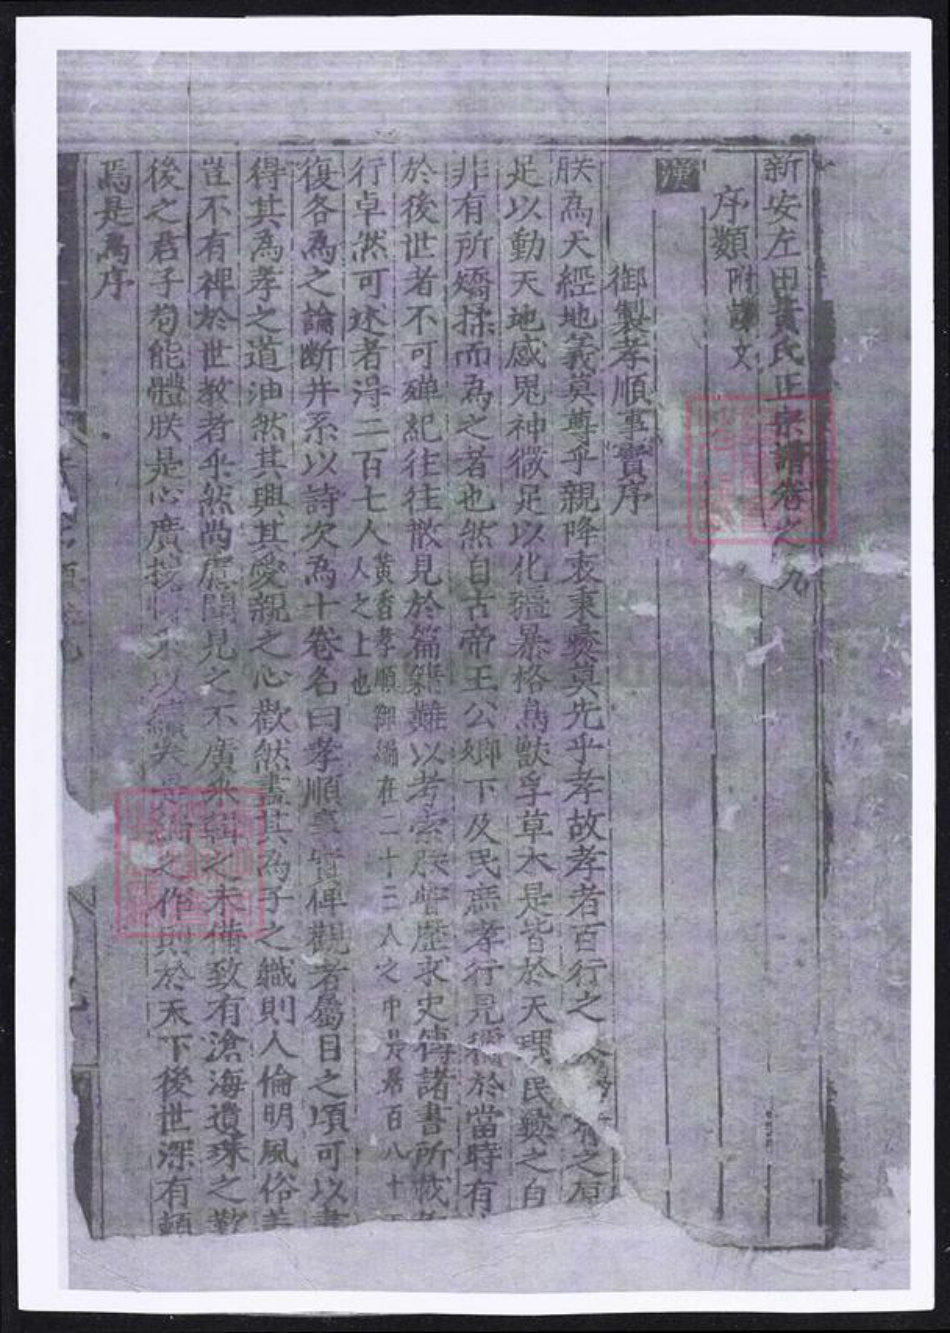 新安左田黃氏正宗譜卷之九
序類 附譔文
漢
御製孝順事實序
朕為天經地義莫尊乎親降衷秉彝莫先乎孝故孝者百行之 之原
足以動天地感鬼神微足以化彊暴格鳥獸孚草木是皆於天理民彝之自
非有所矯揉而為之者也然自古帝王公卿下及民庶孝行見稱於當時有
於後世者不可殫紀往往散見於篇籍難以考索朕嘗歷求史傳諸書所載
行卓然可述者淂二百七人 黃香孝順御編在二十三人之中是居百八十 人之上也
復各為之論斷并系以詩次為十卷名曰孝順事實俾觀者屬目之頃可以盡
得其為孝之道油然其興其愛親之心歡然盡其為子之職則人倫明風俗美
豈不有裨於世教者乎然尚慮聞見之不廣采輯之未備致有滄海遺珠之歎
後之君子苟能體朕是心廣 之作 則於天下後世深有
焉是為序